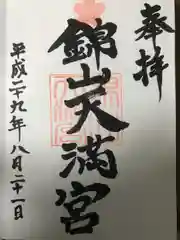 奉拝
錦天満宮
平成二十九年八月二十一日